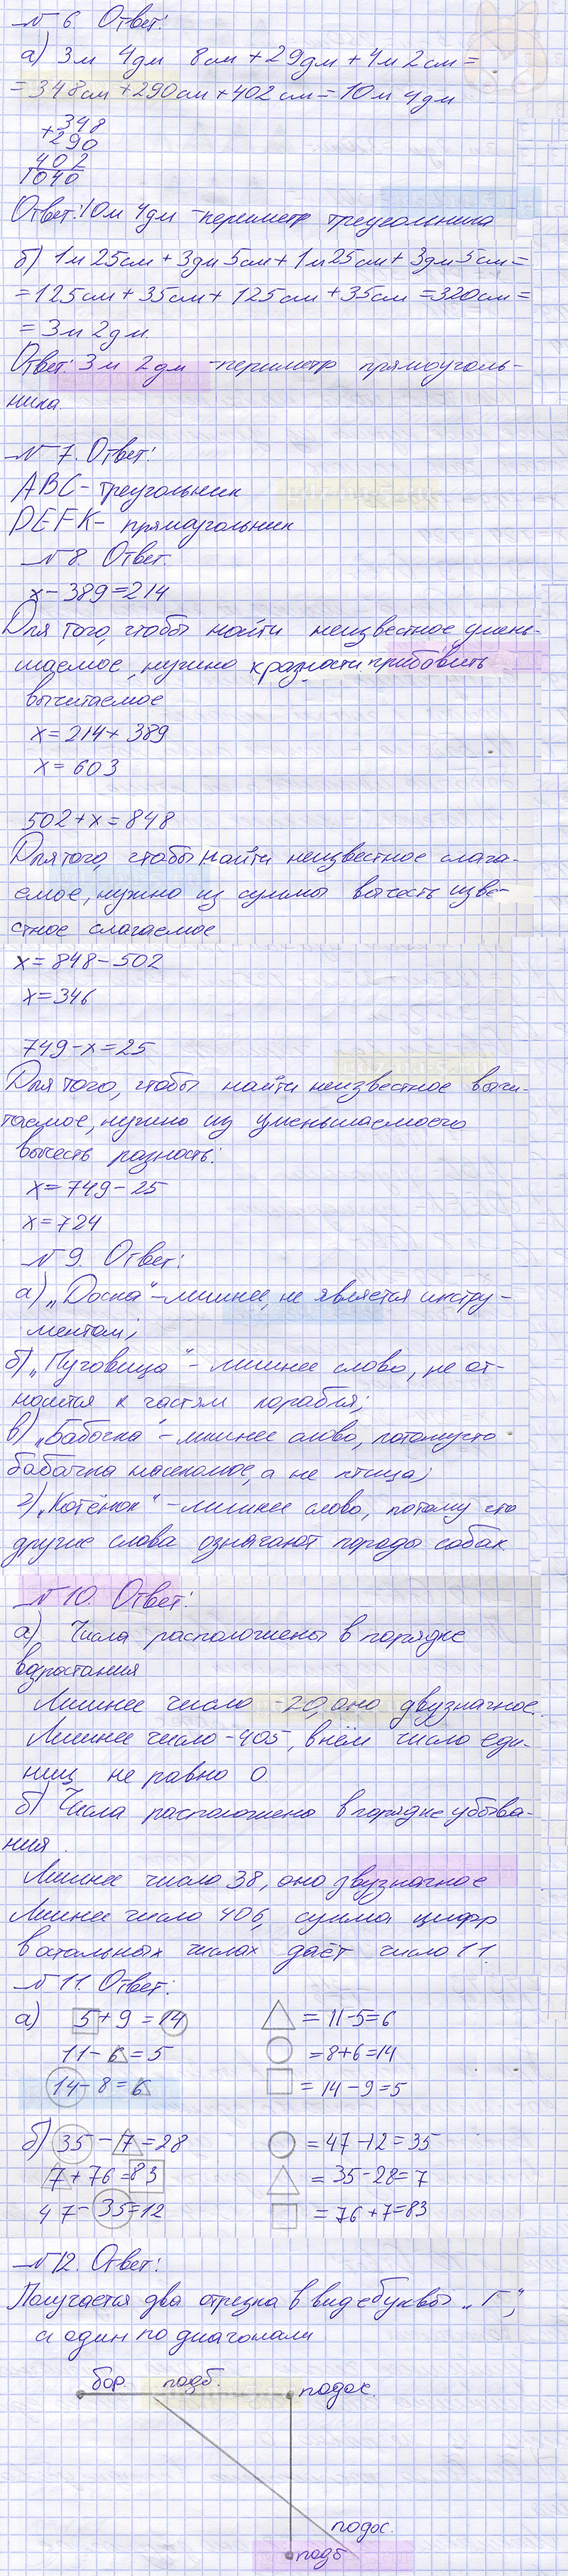 № 6. Ответ:
а) 3м 4дм 8см + 29дм + 4м 2см =
= 348см + 290см + 402см = 10м 4дм
348
+290
402
1040
Ответ: 10м 4дм - периметр треугольника
б) 1м 25см + 3дм 5см + 1м 25см + 3дм 5см =
= 125см + 35см + 125см + 35см = 320см =
= 3м 2дм.
Ответ: 3м 2дм - периметр прямоуголь-
ника.
№ 7. Ответ:
ABC - треугольник
DEFK - прямоугольник
№ 8. Ответ.
х - 389 = 214
Для того, чтобы найти неизвестное умень-
шаемое, нужно к разности прибавить
вычитаемое
х = 214 + 389
х = 603
502 + х = 848
Для того, чтобы найти неизвестное слага-
емое, нужно из суммы вычесть изве-
стное слагаемое
х = 848 - 502
х = 346
749 - х = 25
Для того, чтобы найти неизвестное вычи-
таемое, нужно из уменьшаемого
вычесть разность:
х = 749 - 25
х = 724
№ 9. Ответ:
а) „Доска" - лишнее, не является инстру-
ментом;
б) „Пуговица" - лишнее слово, не от-
носится к частям корабля;
в) „Бабочка" - лишнее слово, потомучто
бабочка насекомое, а не птица;
г) „Котёнок" - лишнее слово, потому что
другие слова означают породы собак.
№ 10. Ответ:
а) Числа расположены в порядке
возрастания
Лишнее число - 20, оно двузначное.
Лишнее число - 405, в нём число еди-
ниц не равно 0
б) Числа расположено в порядке убыва-
ния.
Лишнее число 38, оно двузначное
Лишнее число 406, сумма цифр
в остальных числах даёт число 11.
№ 11. Ответ:
а) 5 + 9 = 14 △ = 11-5=6
11 - 6 = 5 ○ = 8+6=14
14 - 8 = 6 □ = 14-9=5
б) 35 - 7 = 28 ○ = 47-12=35
7 + 76 = 83 △ = 35-28=7
47 - 35 = 12 □ = 76+7=83
№ 12. Ответ:
Получается два отрезка в виде буквы „Г",
а один по диагонали
бор. подб. подос.
подос.
подб